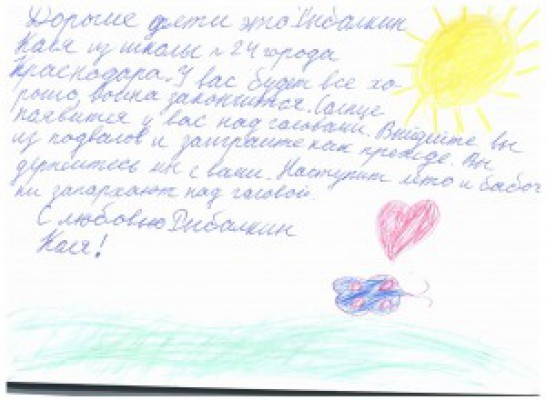 Дорогие дети это Дибалкин
Каля из школы №24 города
Краснодара. У вас будет все хо-
рошо, война закончится. Солнце
появится у вас над головами. Выйдете вы
из подвалов и заиграите как прежде. Вы
держитесь мы с вами. Наступит лето и бабоч
ки запархают над головой.
С любовью Дибалкин
Каля!